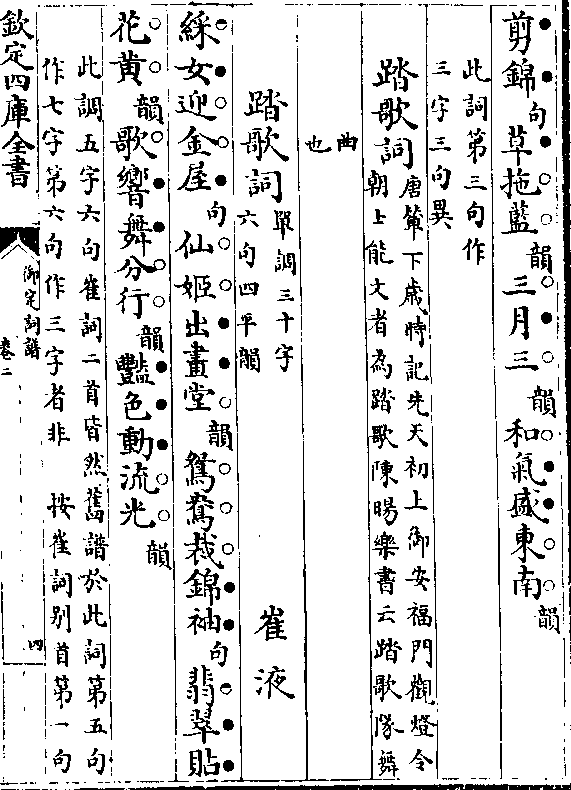 剪錦句草拖藍韻三月三韻和氣盛東南韻
此詞第三句作
三字三句異
踏歌詞
唐輦下歲時記先天初上御安福門觀燈令
朝士能文者為踏歌陳暘樂書云踏歌隊舞
曲
也
踏歌詞
單調三十字
六句四平韻
崔液
綵女迎金屋句仙姬出畫堂韻鴛鴦裁錦袖句翡翠貼
花黄韻歌響舞分行韻豔色動流光韻
此調五字六句崔詞二首皆然舊譜於此詞第五句
作七字第六句作三字者非 按崔詞别首第一句
欽定四庫全書
御定詞譜
卷二
四